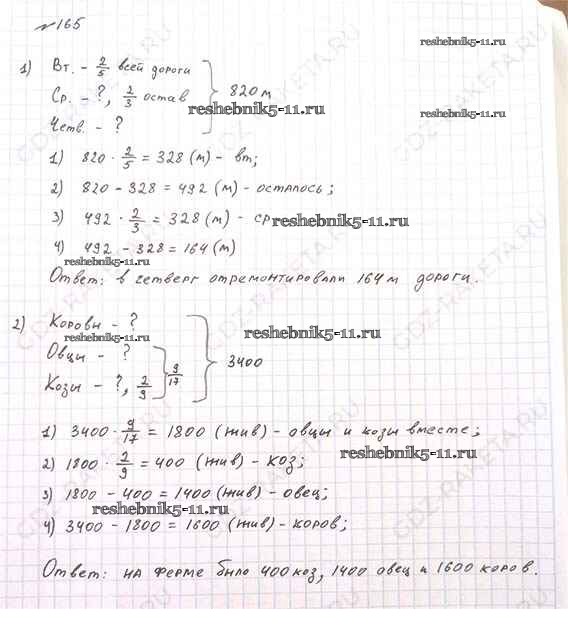 №165
reshebnik5-11.ru
1) Вт. - 2/5 всей дороги
Ср. - ?, 2/3 остав } 820 м
reshebnik5-11.ru
reshebnik5-11.ru
Четв. - ?
1) 820 · 2/5 = 328 (м) - вт;
2) 820 - 328 = 492 (м) - осталось;
3) 492 · 2/3 = 328 (м) - ср
reshebnik5-11.ru
4) 492 - 328 = 164 (м)
reshebnik5-11.ru
Ответ: в четверг отремонтировали 164 м дороги.
2) Коровы - ?
reshebnik5-11.ru
reshebnik5-11.ru
Овцы - ?
Козы - ?, 2/9 } 9/17 } 3400
1) 3400 · 9/17 = 1800 (жив) - овцы и козы вместе;
2) 1800 · 2/9 = 400 (жив) - коз;
reshebnik5-11.ru
3) 1800 - 400 = 1400 (жив) - овец;
reshebnik5-11.ru
4) 3400 - 1800 = 1600 (жив) - коров;
Ответ: на ферме было 400 коз, 1400 овец и 1600 коров.
GDZ-RAKETA.RU